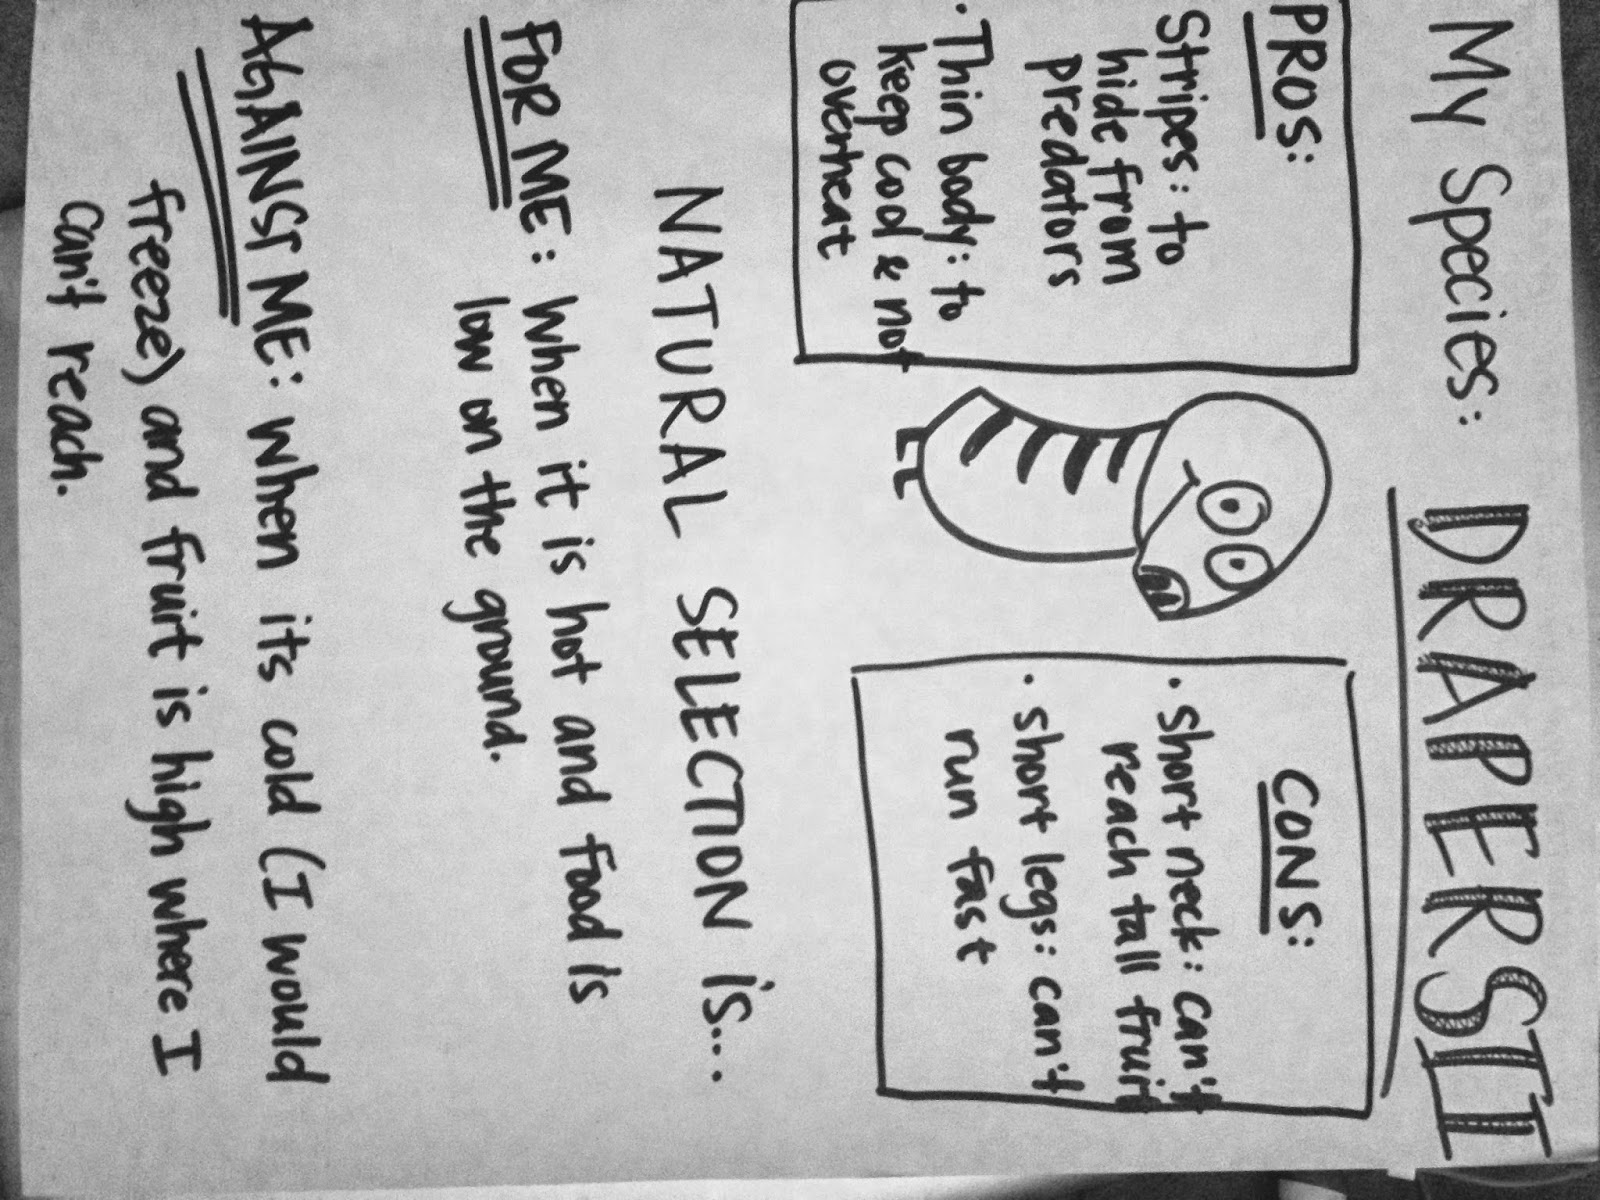 My Species: DRAPERSII
PROS:
Stripes: to
hide from
predators
· Thin body: to
keep cool & not
overheat
CONS:
· short neck: can't
reach tall fruit
· short legs: can't
run fast
NATURAL SELECTION is...
FOR ME: when it is hot and food is
low on the ground.
AGAINST ME: when its cold (I would
freeze) and fruit is high where I
can't reach.